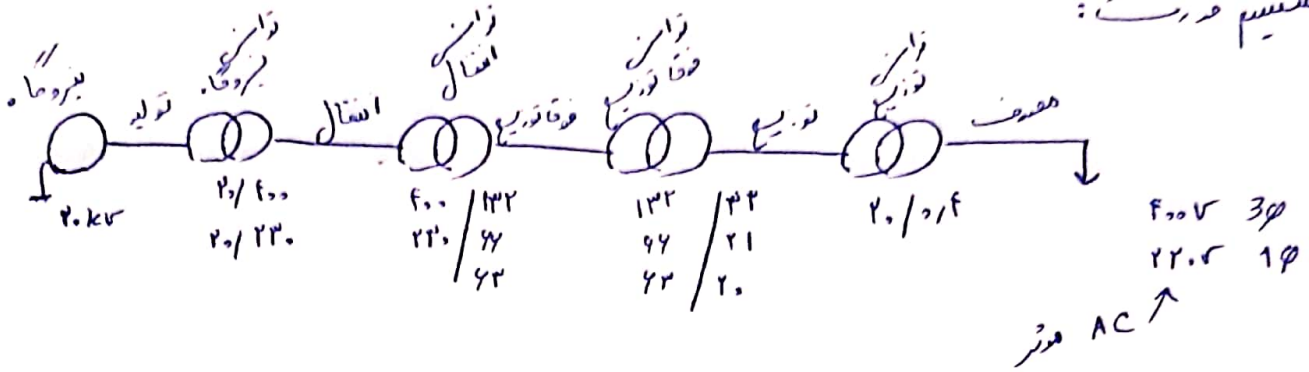 سیستم قدرت:
نیروگاه
تولید
ترانس نیروگاه
انتقال
ترانس انتقال
فوق توزیع
ترانس فوق توزیع
توزیع
ترانس توزیع
مصرف
۲۰kv
۲۰/۴۰۰
۲۰/۲۳۰
۴۰۰ / ۱۳۲
۲۳۰ / ۶۶
۶۳
۱۳۲ / ۳۳
۶۶ / ۲۱
۶۳ / ۲۰
۲۰/۰٫۴
۴۰۰v 3φ
۲۲۰v 1φ
موثر AC